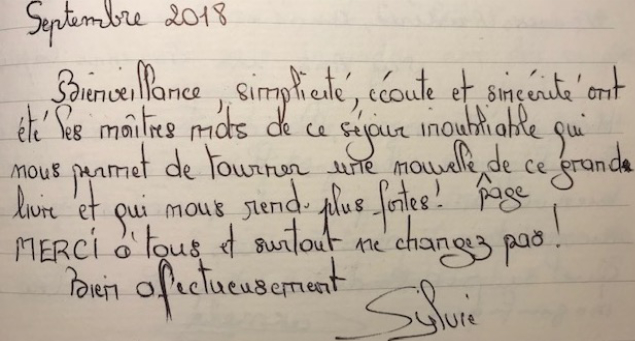 Septembre 2018
Bienveillance, simplicité, écoute et sincérité ont
été les maîtres mots de ce séjour inoubliable qui
nous permet de tourner une nouvelle de ce grand
livre et qui nous rend plus fortes! page
MERCI à tous et surtout ne changez pas!
Bien afectueusement
Sylvie